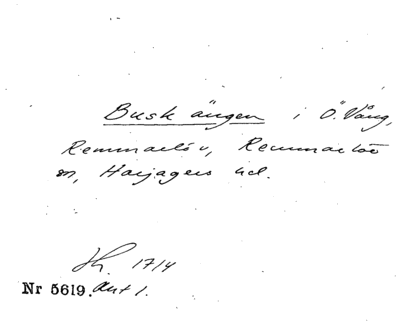 Busk ängen i Ö. Vång,
Remmarlöv, Remmarlöv
sn, Harjagers hd.
1714
Nr 5619. Akt 1.